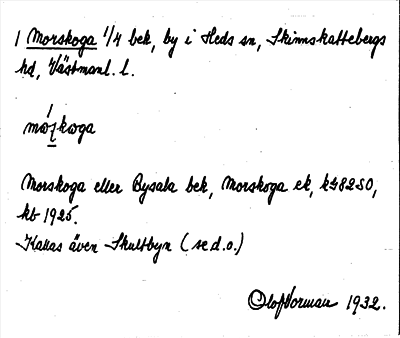 1 Morskoga 1/4 bek, by i Heds sn, Skinnskattebergs
hd, Västmanl. l.
Morskoga eller Bysala bek, Morskoga ek, k282SO,
kb 1925.
Kallas även Skultbyn (se d.o.)
Olof Norman 1932.